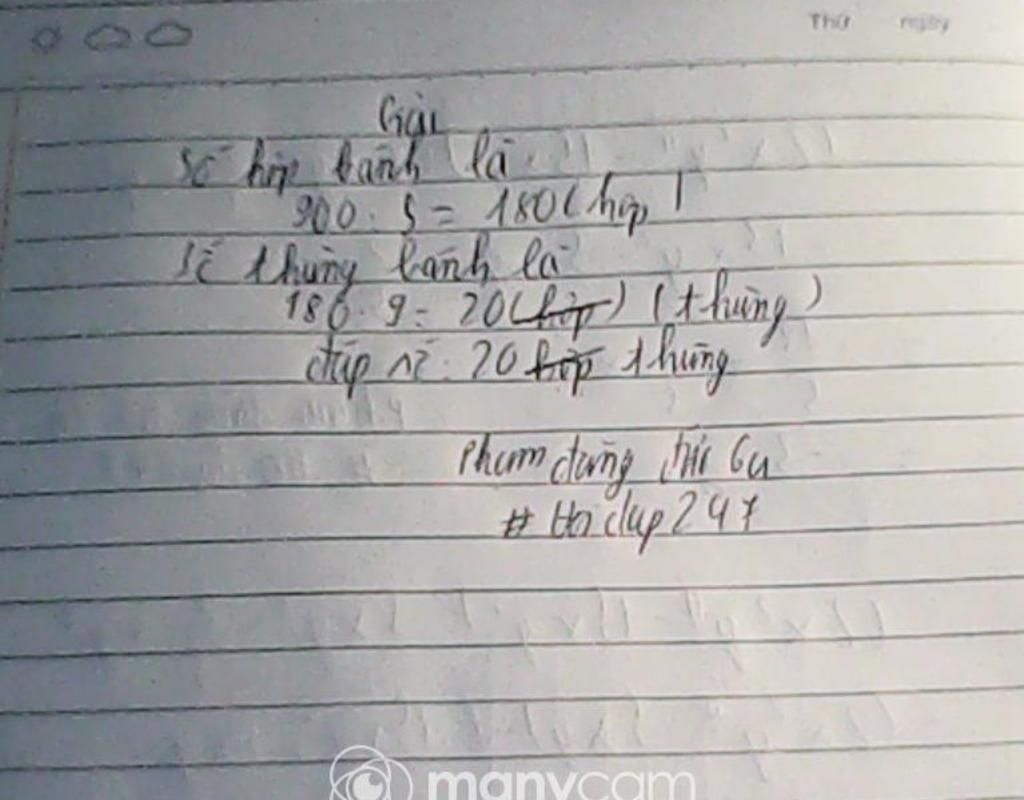 Thứ ngày
Giải
Số hộp bánh là
900 : 5 = 180 (hộp)
Số thùng bánh là
180 : 9 = 20 (hộp) (thùng)
đáp số : 20 hộp thùng
# Hoidap247
manycam